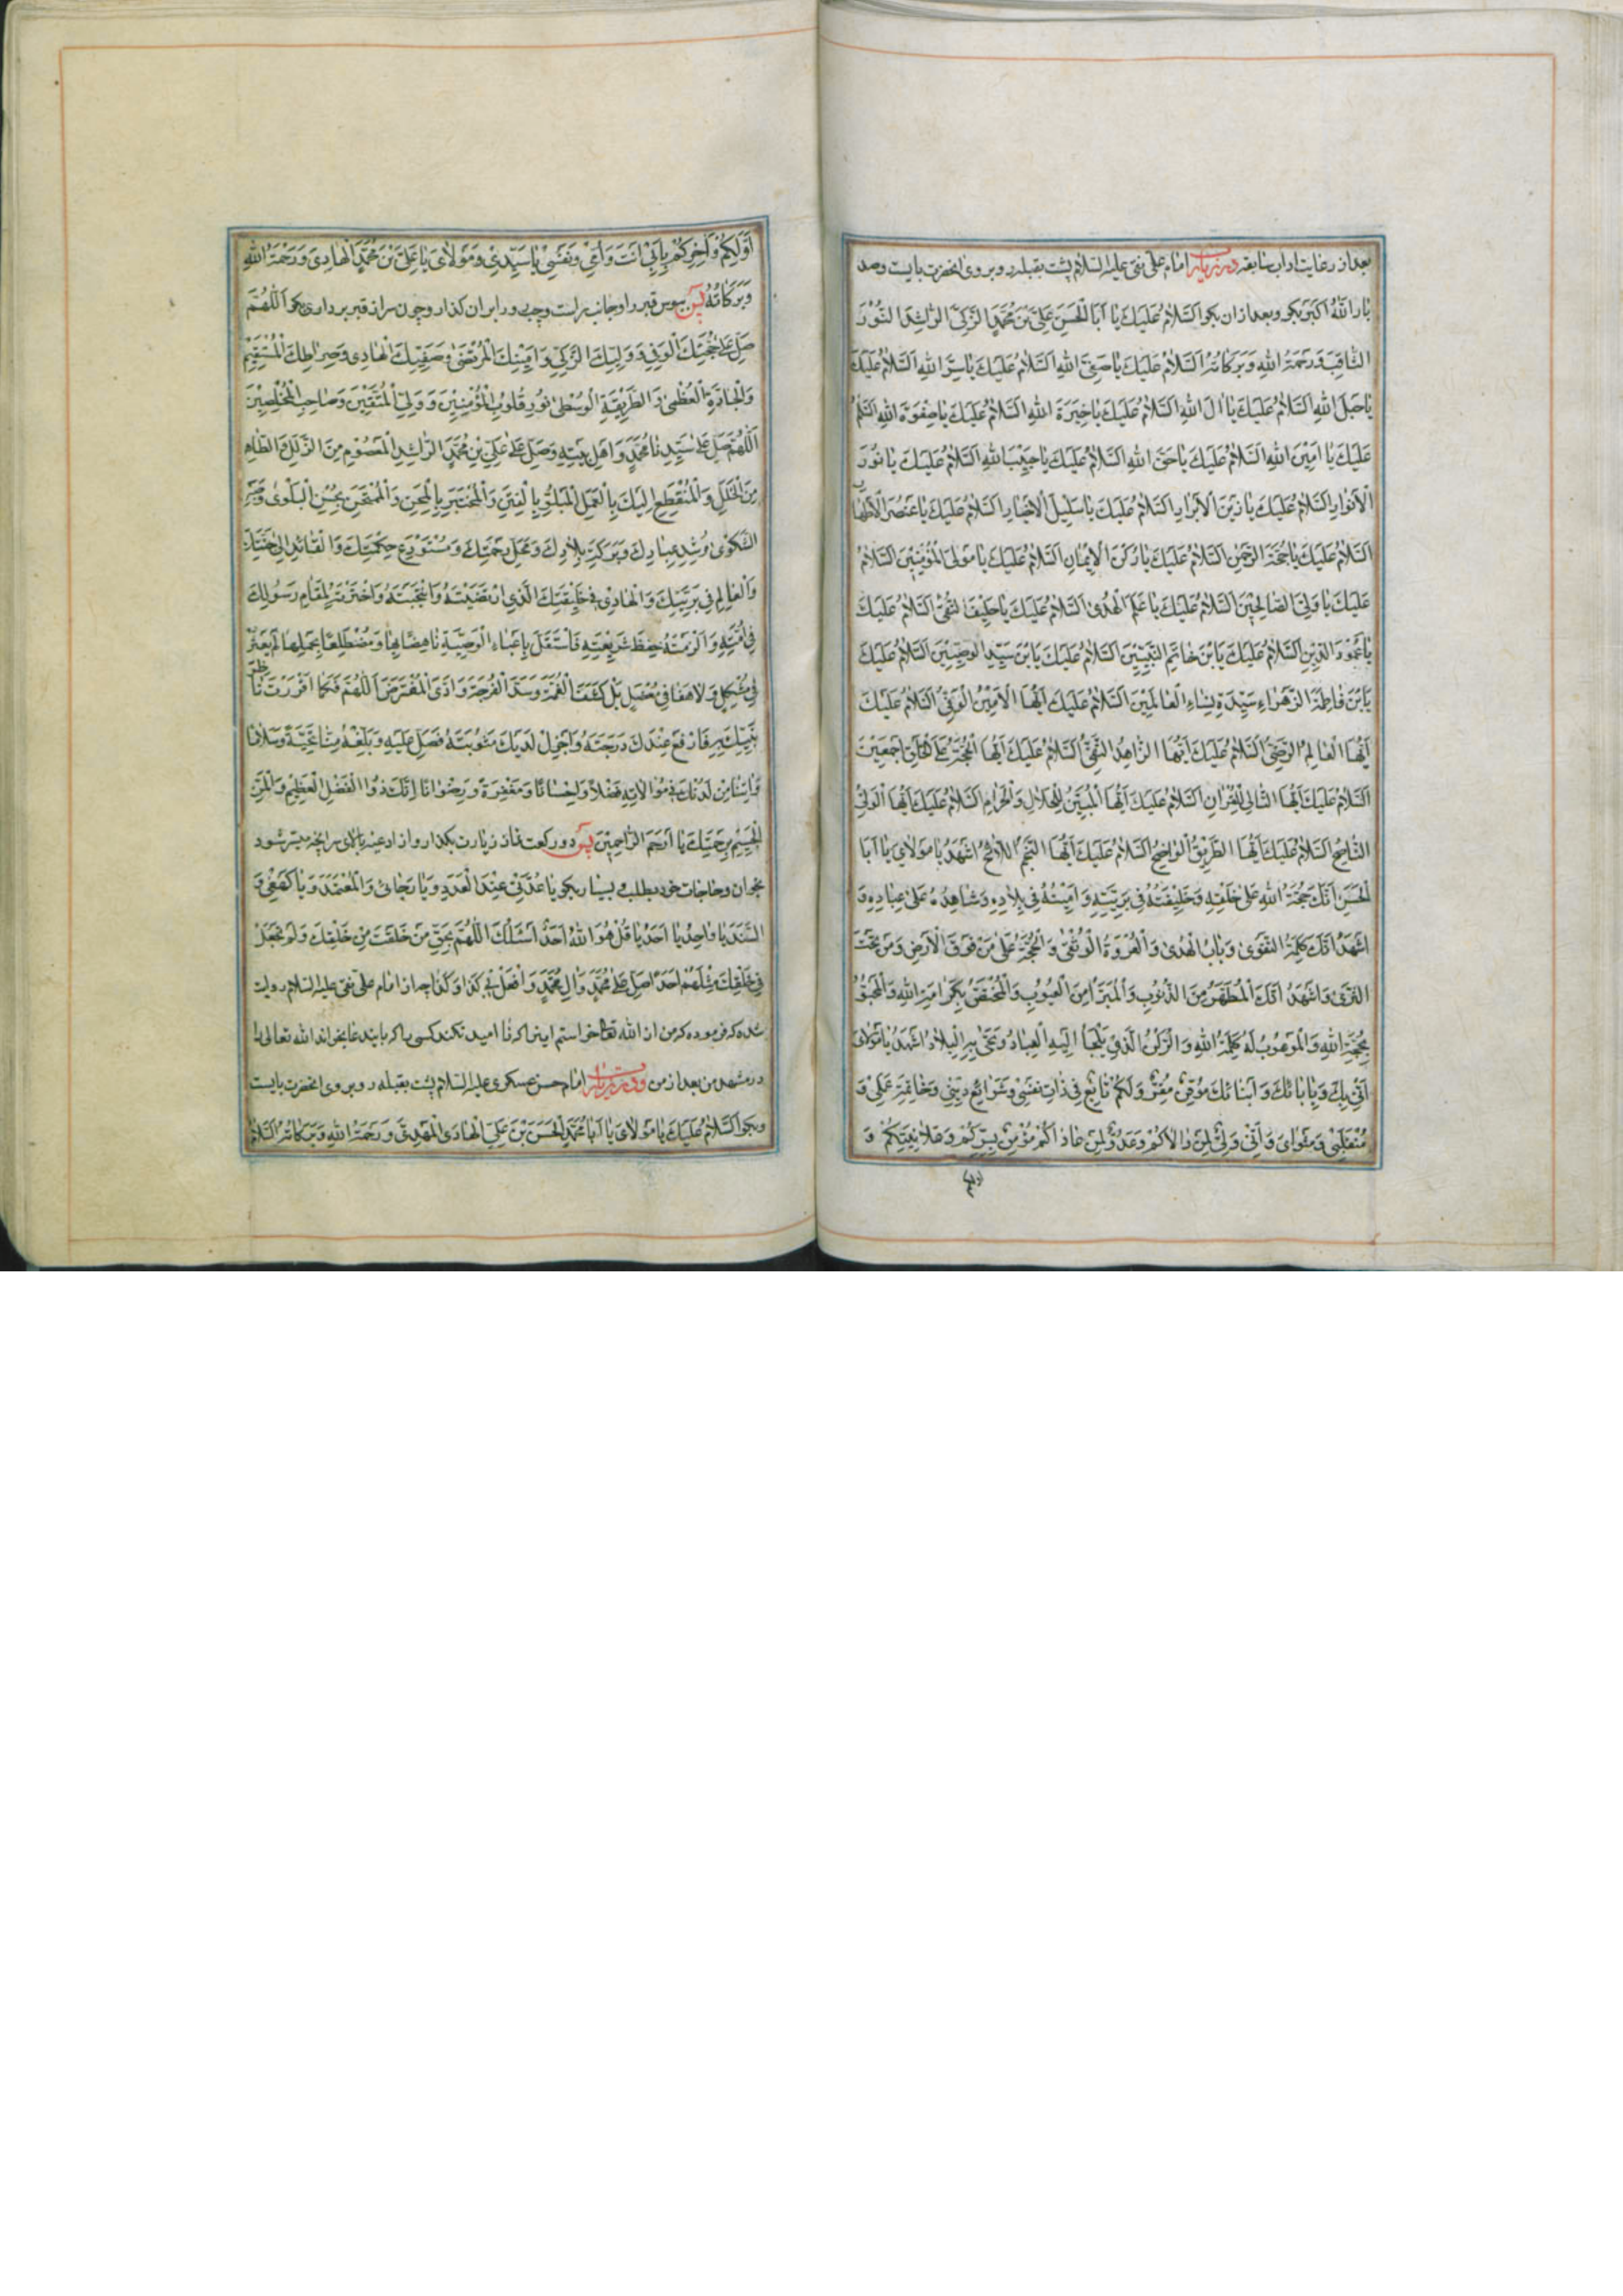 بعد از رعایت اداب سابقه در زیارت امام علی نقی علیه السلام پشت بقبله رو بروی انحضرت بایست و صد
بار اللّٰهُ اکبر بکو و بعد از ان بکو اَلسَّلامُ عَلَیْكَ یا اَبَا الْحَسَنِ عَلِیَّ بْنَ مُحَمَّدٍ الزَّکِیَّ الرّاشِدَ النُّورَ
الثّاقِبَ وَ رَحْمَةُ اللهِ وَ بَرَکاتُهُ اَلسَّلامُ عَلَیْكَ یا صَفِیَّ اللهِ اَلسَّلامُ عَلَیْكَ یا سِرَّ اللهِ اَلسَّلامُ عَلَیْكَ
یا حَبْلَ اللهِ اَلسَّلامُ عَلَیْكَ یا الَ اللهِ اَلسَّلامُ عَلَیْكَ یا خِیَرَةَ اللهِ اَلسَّلامُ عَلَیْكَ یا صِفْوَةَ اللهِ اَلسَّلامُ
عَلَیْكَ یا اَمینَ اللهِ اَلسَّلامُ عَلَیْكَ یا حَقَّ اللهِ اَلسَّلامُ عَلَیْكَ یا حَبیبَ اللهِ اَلسَّلامُ عَلَیْكَ یا نُورَ
الْاَنْوارِ اَلسَّلامُ عَلَیْكَ یا زَیْنَ الْاَبْرارِ اَلسَّلامُ عَلَیْكَ یا سَلیلَ الْاَخْیارِ اَلسَّلامُ عَلَیْكَ یا عُنْصُرَ الْاَطْهارِ
اَلسَّلامُ عَلَیْكَ یا حُجَّةَ الرَّحْمٰنِ اَلسَّلامُ عَلَیْكَ یا رُکْنَ الْایمانِ اَلسَّلامُ عَلَیْكَ یا مَوْلَی الْمُؤْمِنینَ اَلسَّلامُ
عَلَیْكَ یا وَلِیَّ الصّالِحینَ اَلسَّلامُ عَلَیْكَ یا عَلَمَ الْهُدیٰ اَلسَّلامُ عَلَیْكَ یا حَلیفَ التُّقیٰ اَلسَّلامُ عَلَیْكَ
یا عَمُودَ الدّینِ اَلسَّلامُ عَلَیْكَ یَا بْنَ خاتَمِ النَّبِیّینَ اَلسَّلامُ عَلَیْكَ یَا بْنَ سَیِّدِ الْوَصِیّینَ اَلسَّلامُ عَلَیْكَ
یَا بْنَ فاطِمَةَ الزَّهْراءِ سَیِّدَةِ نِساءِ الْعالَمینَ اَلسَّلامُ عَلَیْكَ اَیُّهَا الْاَمینُ الْوَفِیُّ اَلسَّلامُ عَلَیْكَ
اَیُّهَا الْعالِمُ الرَّضِیُّ اَلسَّلامُ عَلَیْكَ اَیُّهَا الزّاهِدُ التَّقِیُّ اَلسَّلامُ عَلَیْكَ اَیُّهَا الْحُجَّةُ عَلَی الْخَلْقِ اَجْمَعینَ
اَلسَّلامُ عَلَیْكَ اَیُّهَا التّالی لِلْقُرْانِ اَلسَّلامُ عَلَیْكَ اَیُّهَا الْمُبَیِّنُ لِلْحَلالِ وَ الْحَرامِ اَلسَّلامُ عَلَیْكَ اَیُّهَا الْوَلِیُّ
النّاصِحُ اَلسَّلامُ عَلَیْكَ اَیُّهَا الطَّریقُ الْواضِحُ اَلسَّلامُ عَلَیْكَ اَیُّهَا النَّجْمُ اللّائِحُ اَشْهَدُ یا مَوْلایَ یا اَبَا
الْحَسَنِ اَنَّكَ حُجَّةُ اللهِ عَلیٰ خَلْقِهِ وَ خَلیفَتُهُ فی بَرِیَّتِهِ وَ اَمینُهُ فی بِلادِهِ وَ شاهِدُهُ عَلیٰ عِبادِهِ وَ
اَشْهَدُ اَنَّكَ کَلِمَةُ التَّقْویٰ وَ بابُ الْهُدیٰ وَ الْعُرْوَةُ الْوُثْقیٰ وَ الْحُجَّةُ عَلیٰ مَنْ فَوْقَ الْاَرْضِ وَ مَنْ تَحْتَ
الثَّریٰ وَ اَشْهَدُ اَنَّكَ الْمُطَهَّرُ مِنَ الذُّنُوبِ وَ الْمُبَرَّأُ مِنَ الْعُیُوبِ وَ الْمُخْتَصُّ بِکَرامَةِ اللهِ وَ الْمَحْبُوُّ
بِحُجَّةِ اللهِ وَ الْمَوْهُوبُ لَهُ کَلِمَةُ اللهِ وَ الرُّکْنُ الَّذی یَلْجَأُ اِلَیْهِ الْعِبادُ وَ تَحْییٰ بِهِ الْبِلادُ اَشْهَدُ یا مَوْلایَ
اَنّی بِكَ وَ بِابائِكَ وَ اَبْنائِكَ مُوقِنٌ مُقِرٌّ وَ لَکُمْ تابِعٌ فی ذاتِ نَفْسی وَ شَرائِعِ دینی وَ خاتِمَةِ عَمَلی وَ
مُنْقَلَبی وَ مَثْوایَ وَ اَنّی وَلِیٌّ لِمَنْ والاکُمْ وَ عَدُوٌّ لِمَنْ عاداکُمْ مُؤْمِنٌ بِسِرِّکُمْ وَ عَلانِیَتِکُمْ وَ
اولکم
اَوَّلِکُمْ وَ اخِرِکُمْ بِاَبی اَنْتَ وَ اُمّی وَ نَفْسی یا سَیِّدی وَ مَوْلایَ یا عَلِیَّ بْنَ مُحَمَّدٍ الْهادی وَ رَحْمَةُ اللهِ
وَ بَرَکاتُهُ پس ببوس قبر را و جانب راست و چپ رو را بر ان کذار و چون سر از قبر برداری بکو اَللّٰهُمَّ
صَلِّ عَلیٰ حُجَّتِكَ الْوَفِیِّ وَ وَلِیِّكَ الزَّکِیِّ وَ اَمینِكَ الْمُرْتَضیٰ وَ صَفِیِّكَ الْهادی وَ صِراطِكَ الْمُسْتَقیمِ
وَ الْجادَّةِ الْعُظْمیٰ وَ الطَّریقَةِ الْوُسْطیٰ نُورِ قُلُوبِ الْمُؤْمِنینَ وَ وَلِیِّ الْمُتَّقینَ وَ صاحِبِ الْمُخْلِصینَ
اَللّٰهُمَّ صَلِّ عَلیٰ سَیِّدِنا مُحَمَّدٍ وَ اَهْلِ بَیْتِهِ وَ صَلِّ عَلیٰ عَلِیِّ بْنِ مُحَمَّدٍ الرّاشِدِ الْمَعْصُومِ مِنَ الزَّلَلِ وَ الطّاهِرِ
مِنَ الْخَلَلِ وَ الْمُنْقَطِعِ اِلَیْكَ بِالْعَمَلِ الْمَبْلُوِّ بِالْفِتَنِ وَ الْمُخْتَبَرِ بِالْمِحَنِ وَ الْمُمْتَحَنِ بِحُسْنِ الْبَلْویٰ وَ صَبْرِ
الشَّکْویٰ مُرْشِدِ عِبادِكَ وَ بَرَکَةِ بِلادِكَ وَ مَحَلِّ رَحْمَتِكَ وَ مُسْتَوْدَعِ حِکْمَتِكَ وَ الْقائِدِ اِلیٰ جَنَّتِكَ
وَ الْعالِمِ فی بَرِیَّتِكَ وَ الْهادی فی خَلیقَتِكَ الَّذی ارْتَضَیْتَهُ وَ انْتَجَبْتَهُ وَ اخْتَرْتَهُ لِمَقامِ رَسُولِكَ
فی اُمَّتِهِ وَ اَلْزَمْتَهُ حِفْظَ شَریعَتِهِ فَاسْتَقَلَّ بِاَعْباءِ الْوَصِیَّةِ ناهِضًا بِها وَ مُضْطَلِعًا بِحَمْلِها لَمْ یَعْثُرْ
فی مُشْکِلٍ وَ لا هَفا فی مُعْضِلٍ بَلْ کَشَفَ الْغُمَّةَ وَ سَدَّ الْفُرْجَةَ وَ اَدَّی الْمُفْتَرَضَ اَللّٰهُمَّ فَکَما اَقْرَرْتَ ناظِرَ
نَبِیِّكَ بِهِ فَارْفَعْ عِنْدَكَ دَرَجَتَهُ وَ اَجْزِلْ لَدَیْكَ مَثُوبَتَهُ فَصَلِّ عَلَیْهِ وَ بَلِّغْهُ مِنّا تَحِیَّةً وَ سَلامًا
وَ اتِنا مِنْ لَدُنْكَ فی مُوالاتِهِ فَضْلًا وَ اِحْسانًا وَ مَغْفِرَةً وَ رِضْوانًا اِنَّكَ ذُوا الْفَضْلِ الْعَظیمِ وَ الْمَنِّ
الْجَسیمِ بِرَحْمَتِكَ یا اَرْحَمَ الرّاحِمینَ پس دو رکعت نماز زیارت بکذار و از ادعیه بالای سر انچه میسر شود
بخوان و حاجات خود بطلب و بسیار بکو یا عُدَّتی عِنْدَ الْعَدَدِ وَ یا رَجائی وَ الْمُعْتَمَدَ وَ یا کَهْفی وَ
السَّنَدَ یا واحِدُ یا اَحَدُ یا قُلْ هُوَ اللهُ اَحَدٌ اَسْئَلُكَ اللّٰهُمَّ بِحَقِّ مَنْ خَلَقْتَ مِنْ خَلْقِكَ وَ لَمْ تَجْعَلْ
فی خَلْقِكَ مِثْلَهُمْ اَحَدًا صَلِّ عَلیٰ مُحَمَّدٍ وَ الِ مُحَمَّدٍ وَ افْعَلْ بی کَذا وَ کَذا چه از امام علی نقی علیه السلام روایت
شده که فرموده که من از الله تعا خواستم اینرا که نا امید نکند کسی را که باین دعا بخواند الله تعالی را
در مشهد من بعد از من و در زیارت امام حسن عسکری علیه السلام پشت بقبله رو بروی انحضرت بایست
و بکو اَلسَّلامُ عَلَیْكَ یا مَوْلایَ یا اَبا مُحَمَّدٍ الْحَسَنَ بْنَ عَلِیٍّ الْهادیَ الْمُهْتَدِیَ وَ رَحْمَةُ اللهِ وَ بَرَکاتُهُ اَلسَّلامُ